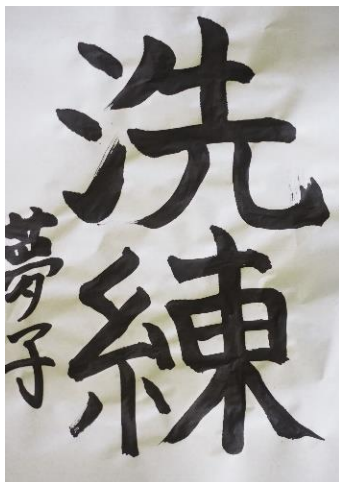 洗練
夢子